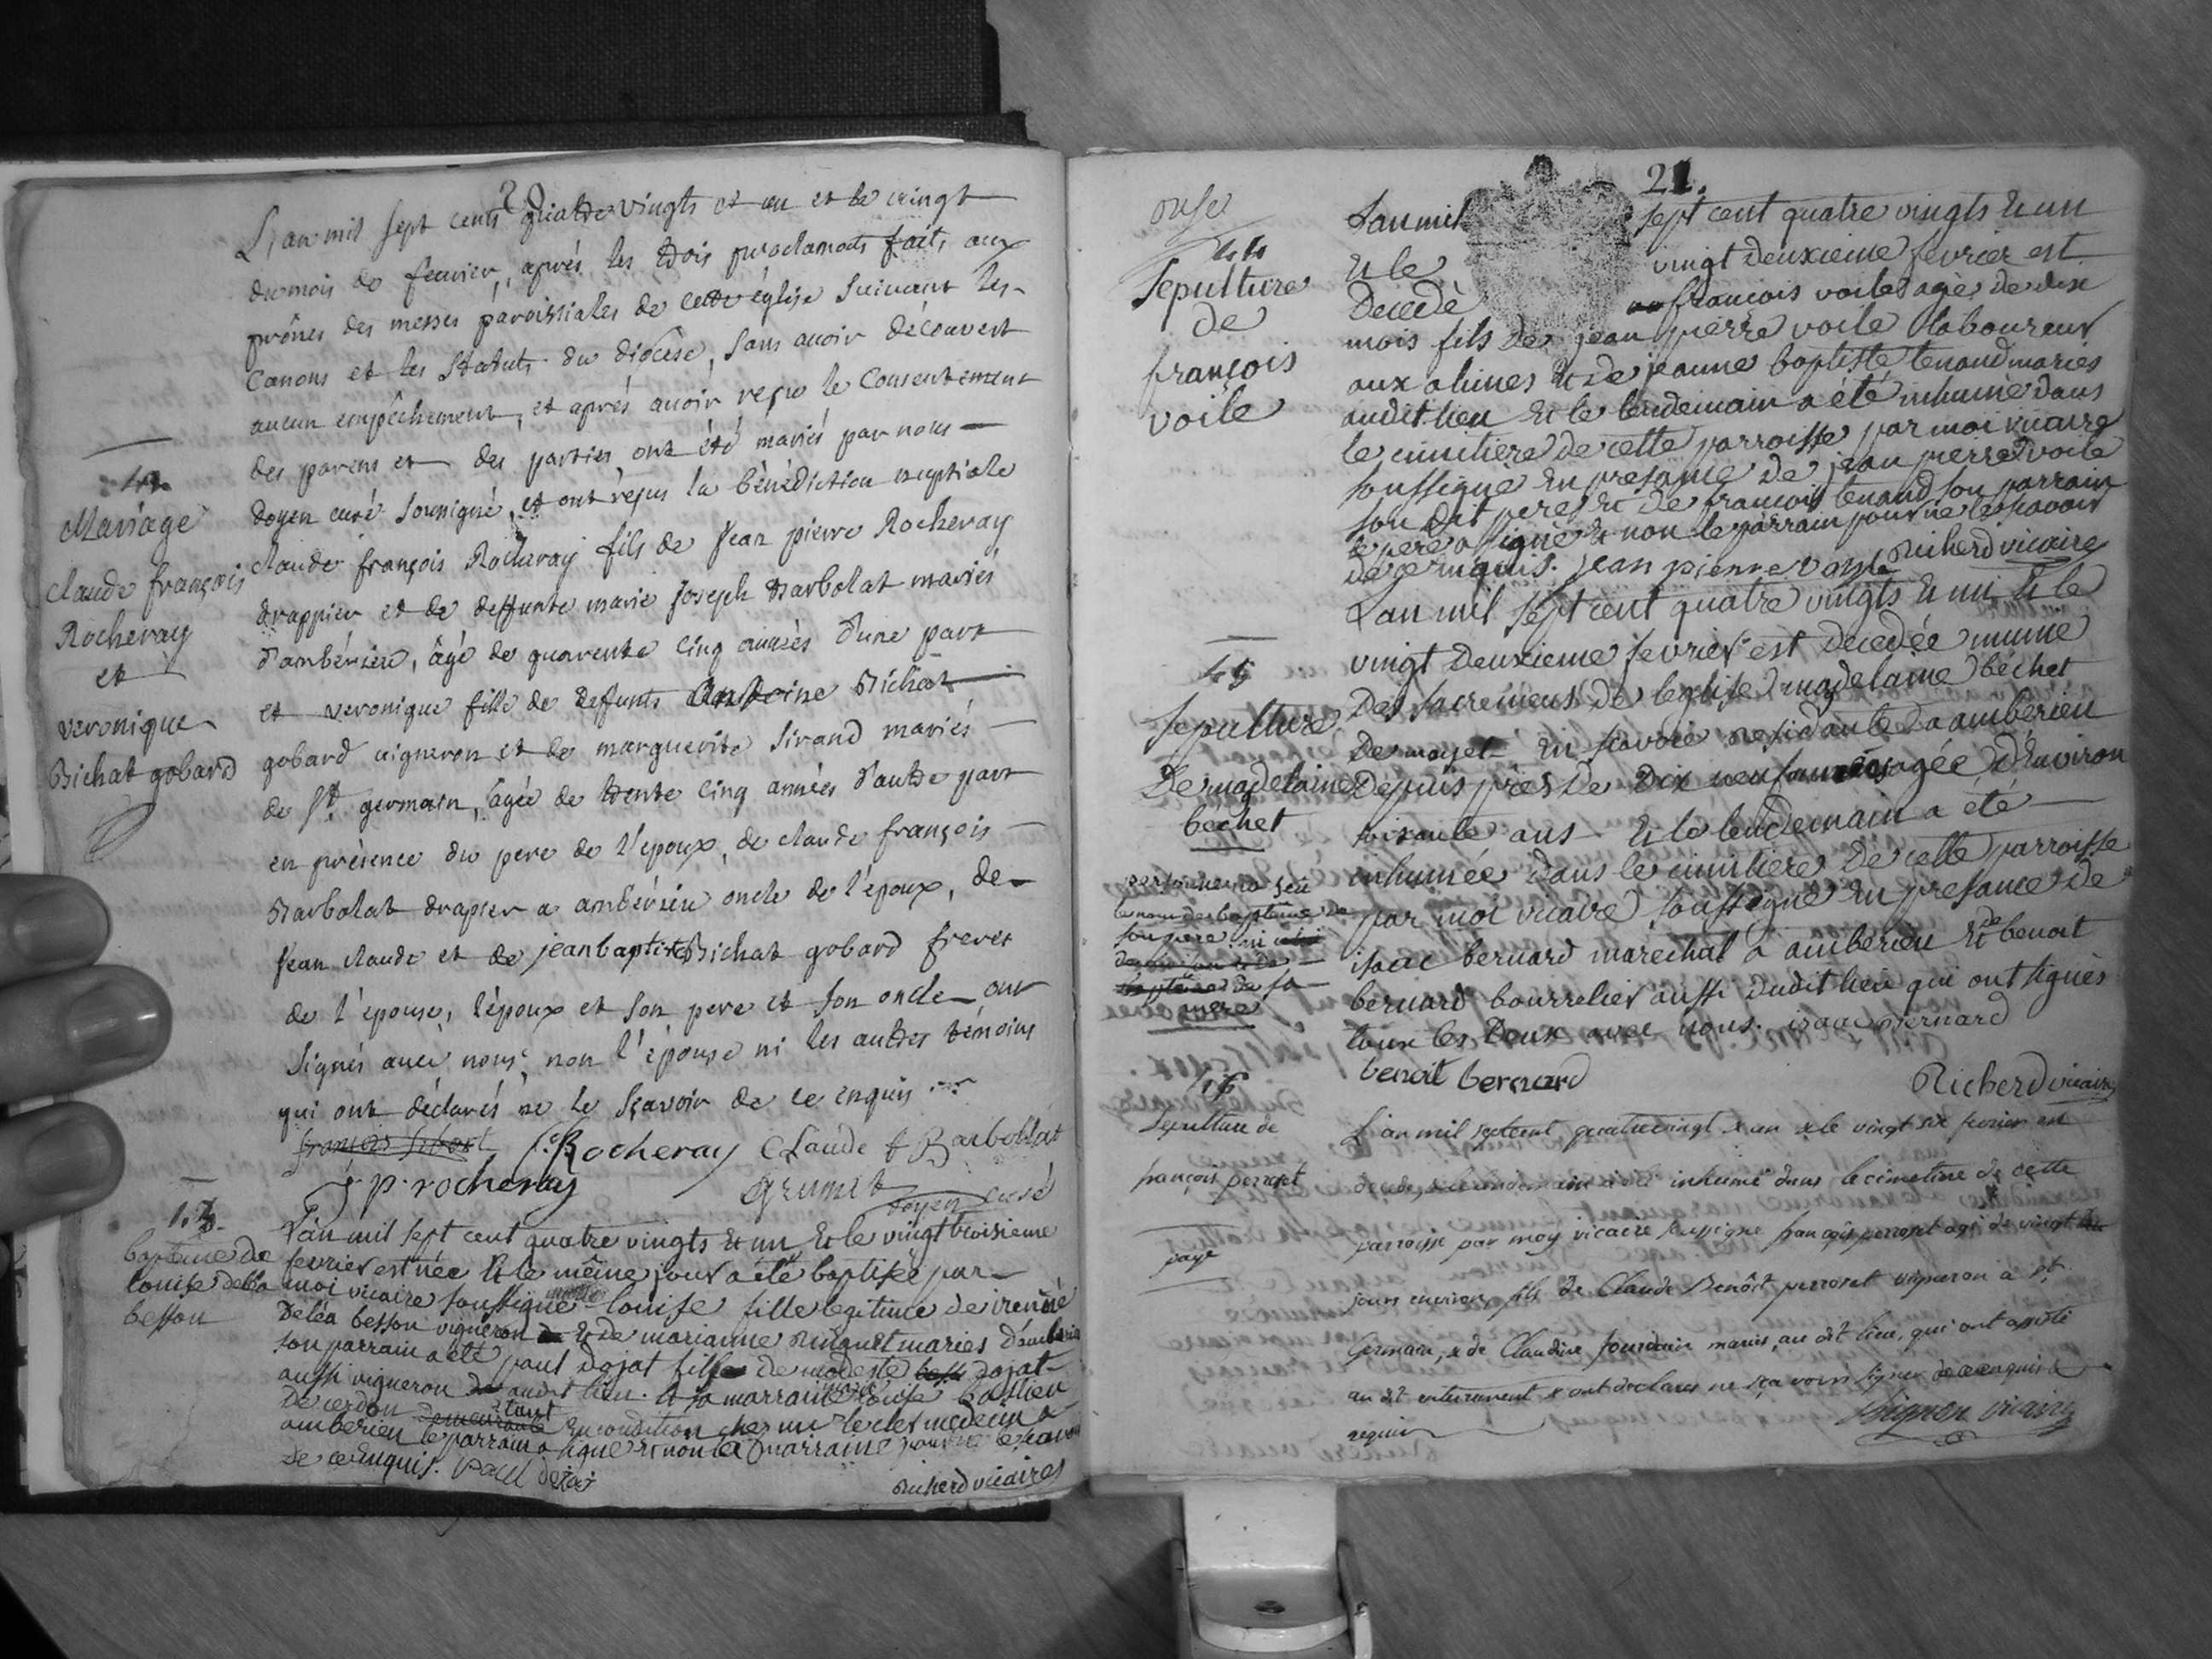 20
L'an mil sept cents quatre vingts et un et le vingt
du mois de fevrier, aprés les trois proclamats faits aux
prônes des messes paroissiales de cette église suivant les
Canons et les Statuts du diocèse, sans avoir découvert
aucun empêchement, et aprés avoir reçu le Consentement
des parens et des parties ont été mariés par nous
doyen curé soussigné, et ont reçus la bénédiction nuptiale
claude françois Rocheray fils de Jean pierre Rocheray
drappier et de deffunte marie Joseph Barbolat mariés
d'ambérieu, âgé de quarente cinq années d'une part
et veronique fille de deffunts Antoine Bichat
gobard vigneron et de marguerite Sirand mariés
de St germain, agée de trente cinq années d'autre part
en présence du pere de l'epoux, de claude françois
Barbolat drapier a ambérieu oncle de l'époux, de
Jean claude et de jean baptiste Bichat gobard freres
de l'épouse, l'époux et son pere et son oncle ont
signés avec nous non l'épouse ni les autres témoins
qui ont déclarés ne le sçavoir de ce enquis
Mariage
claude françois
Rocheray
et
veronique
Bichat gobard
C. Rocheray Claude f Barbollat
j. p. rocheray Grumet
doyen curé
13.
bapteme de
louise
besson
L'an mil sept cent quatre vingts et un et le vingt troisieme
fevrier est née et le même jour a été baptisée par
moi vicaire soussigné louise fille legitime de irenné
besson vigneron et de marianne mariés d'ambérieu
son parrain a été paul dojat fils de modeste dojat
aussi vigneron audit lieu. et sa marraine louise
de cerdon en condition chez mr medecin a
amberieu le parrain a signé et non la marraine pour ne le sçavoir
de ce enquis. Paul dojat
Richerd vicaire
21.
onse
44
Sepulture
de
françois
voile
L'an mil sept cent quatre vingts et un
et le vingt deuxieme fevrier est
Decedé françois voile agé de dix
mois fils de jean pierre voile laboureur
aux alimes et de jeanne baptiste tenand mariés
audit lieu et le lendemain a été inhumé dans
le cimitiere de cette parroisse par moi vicaire
soussigné en presance de jean pierre voile
son dit pere et de françois tenand son parrain
le pere a signé et non le parrain pour ne le sçavoir
de ce enquis. jean pierre voyle Richerd vicaire
45
Sepulture
De magdelaine
bechet
L'an mil sept cent quatre vingts et un et le
vingt deuxieme fevrier est decedée munie
des sacremens de leglise magdelaine béchet
de en savoie residante a amberieu
depuis près de dix neuf années agée d'environ
soixante ans et le lendemain a été
inhumée dans le cimitiere de cette parroisse
par moi vicaire soussigné en presance de
isaac bernard maréchal a amberieu et de benoit
bernard bourrelier aussi dudit lieu qui ont signés
tous les deux avec nous. isaac Bernard
benoit bernard
Richerd vicaire
personne n'a sçu
le nom de baptême de
son pere ni
de sa
mere
46
Sepulture de
françois perroset
payé
L'an mil sept cent quatre vingt & un & le vingt six fevrier est
decedé, & le lendemain a été inhumé dans le cimetiere de cette
parroisse par moy vicaire soussigné françois perroset agé de vingt
jours environ, fils de Claude Benôit perroset vigneron a St
Germain, & de Claudine Jourdain mariés, au dit lieu, qui ont assisté
au dit enterrement & ont declarés ne sçavoir signer de ce enquis &
requis
vicaire